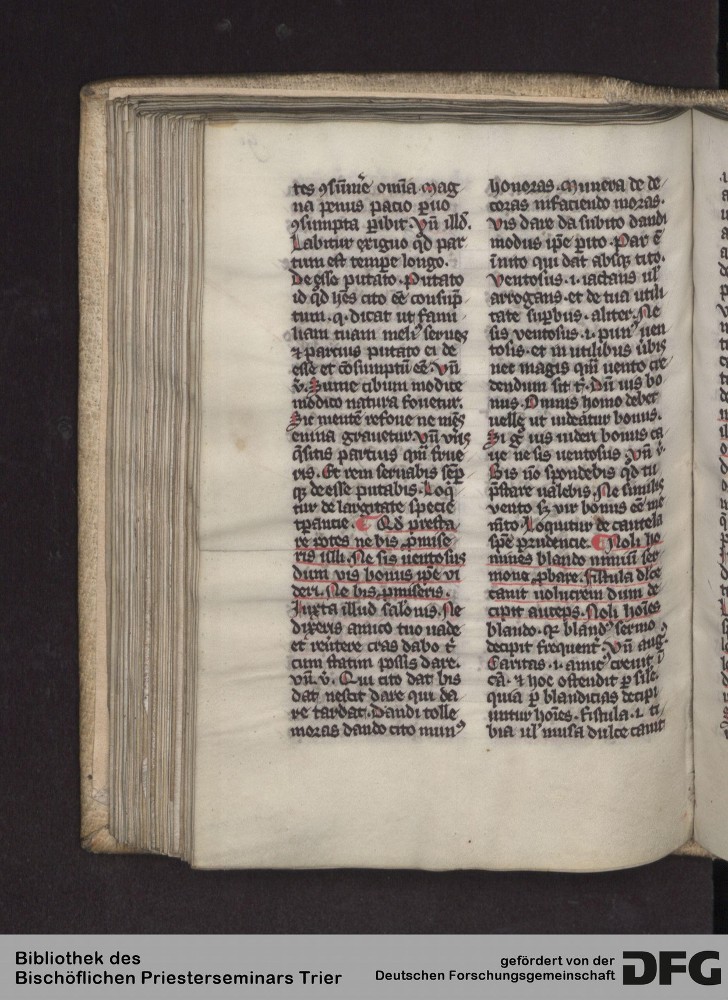 tes ꝯsũm̃e omĩa mag
na penus pacio ꝑuo
ꝯsumpta ꝑibit. Vñ illđ.
Labitur exiguo qđ par
tum est tempe longo.
Deesse putato. Putato
id qđ hẽs cito eẽ consup̃
tum. q. dicat ut fami
liam tuam meli⁹ serues
⁊ parcius putato ei de
esse et cõsumptũ eẽ. vñ
v̾. Sume cibum modice
modico natura fouetur.
Sic mentẽ refoue ne mẽs
enina grauetur. vñ viís
q̃sitis parcius quã frue
ris. Et rem seruabis sẽp
qz deesse putabis. Loq̃
tur de largitate specie
tꝑancie. Qđ presta
re potes ne bis ꝓmise
ris illi. Ne sis uentosus
dum vis bonus ip̃e vi
deri. Ne bis ꝓmiseris.
Iuxta illud salomis. Ne
dixeris amico tuo uade
et reũtere cras dabo t̾
cum statim possis dare.
vñ. v̾. Qui cito dat bis
dat nescit dare qui da
re tardat. Dandi tolle
moras dando cito mun⁹
honoras. Munera de de
coras nifaciendo moras.
vis dare da subito dandi
modus ip̃e ꝑito. Par ẽ
ĩnito qui dat absqz cito.
Ventosus .i. iactans ul̾
arrogans. et de tua utili
tate suꝑbus. aliter. Ne
sis ventosus .i. pun⁹ uen
tosis. et in utilibus ũbis
nec magis quã uento cre
dendum sit t̾. Dũ uis bo
nus. Omnis homo debet
uelle ut uideãtur bonus.
Si g̃ uis uideri bonus ca
ue ne sis uentosus. vñ v̾.
Bis nõ spondebis qđ tu
p̃stare ualebis. Ne similis
vento sz vir bonus eẽ me
m̃to. Loquitur de cautela
spẽ prudencie. Noli ho
mines blando nimiũ ser
mone ꝓbare. fistula dlce
canit uolucrem dum de
cipit auceps. Noli hoĩes
blando. qz bland⁹ sermo
decipit frequent̾. Vñ aug.
Caritas .i. amic⁹ creuit ĩ
cã. ⁊ hoc ostendit ꝑ sile.
quia ꝑ blandicias decipi
untur hoĩes. fistula .i. ti
bia ul̾ musa dulce canit
Bibliothek des
Bischöflichen Priesterseminars Trier
gefördert von der
Deutschen Forschungsgemeinschaft
DFG